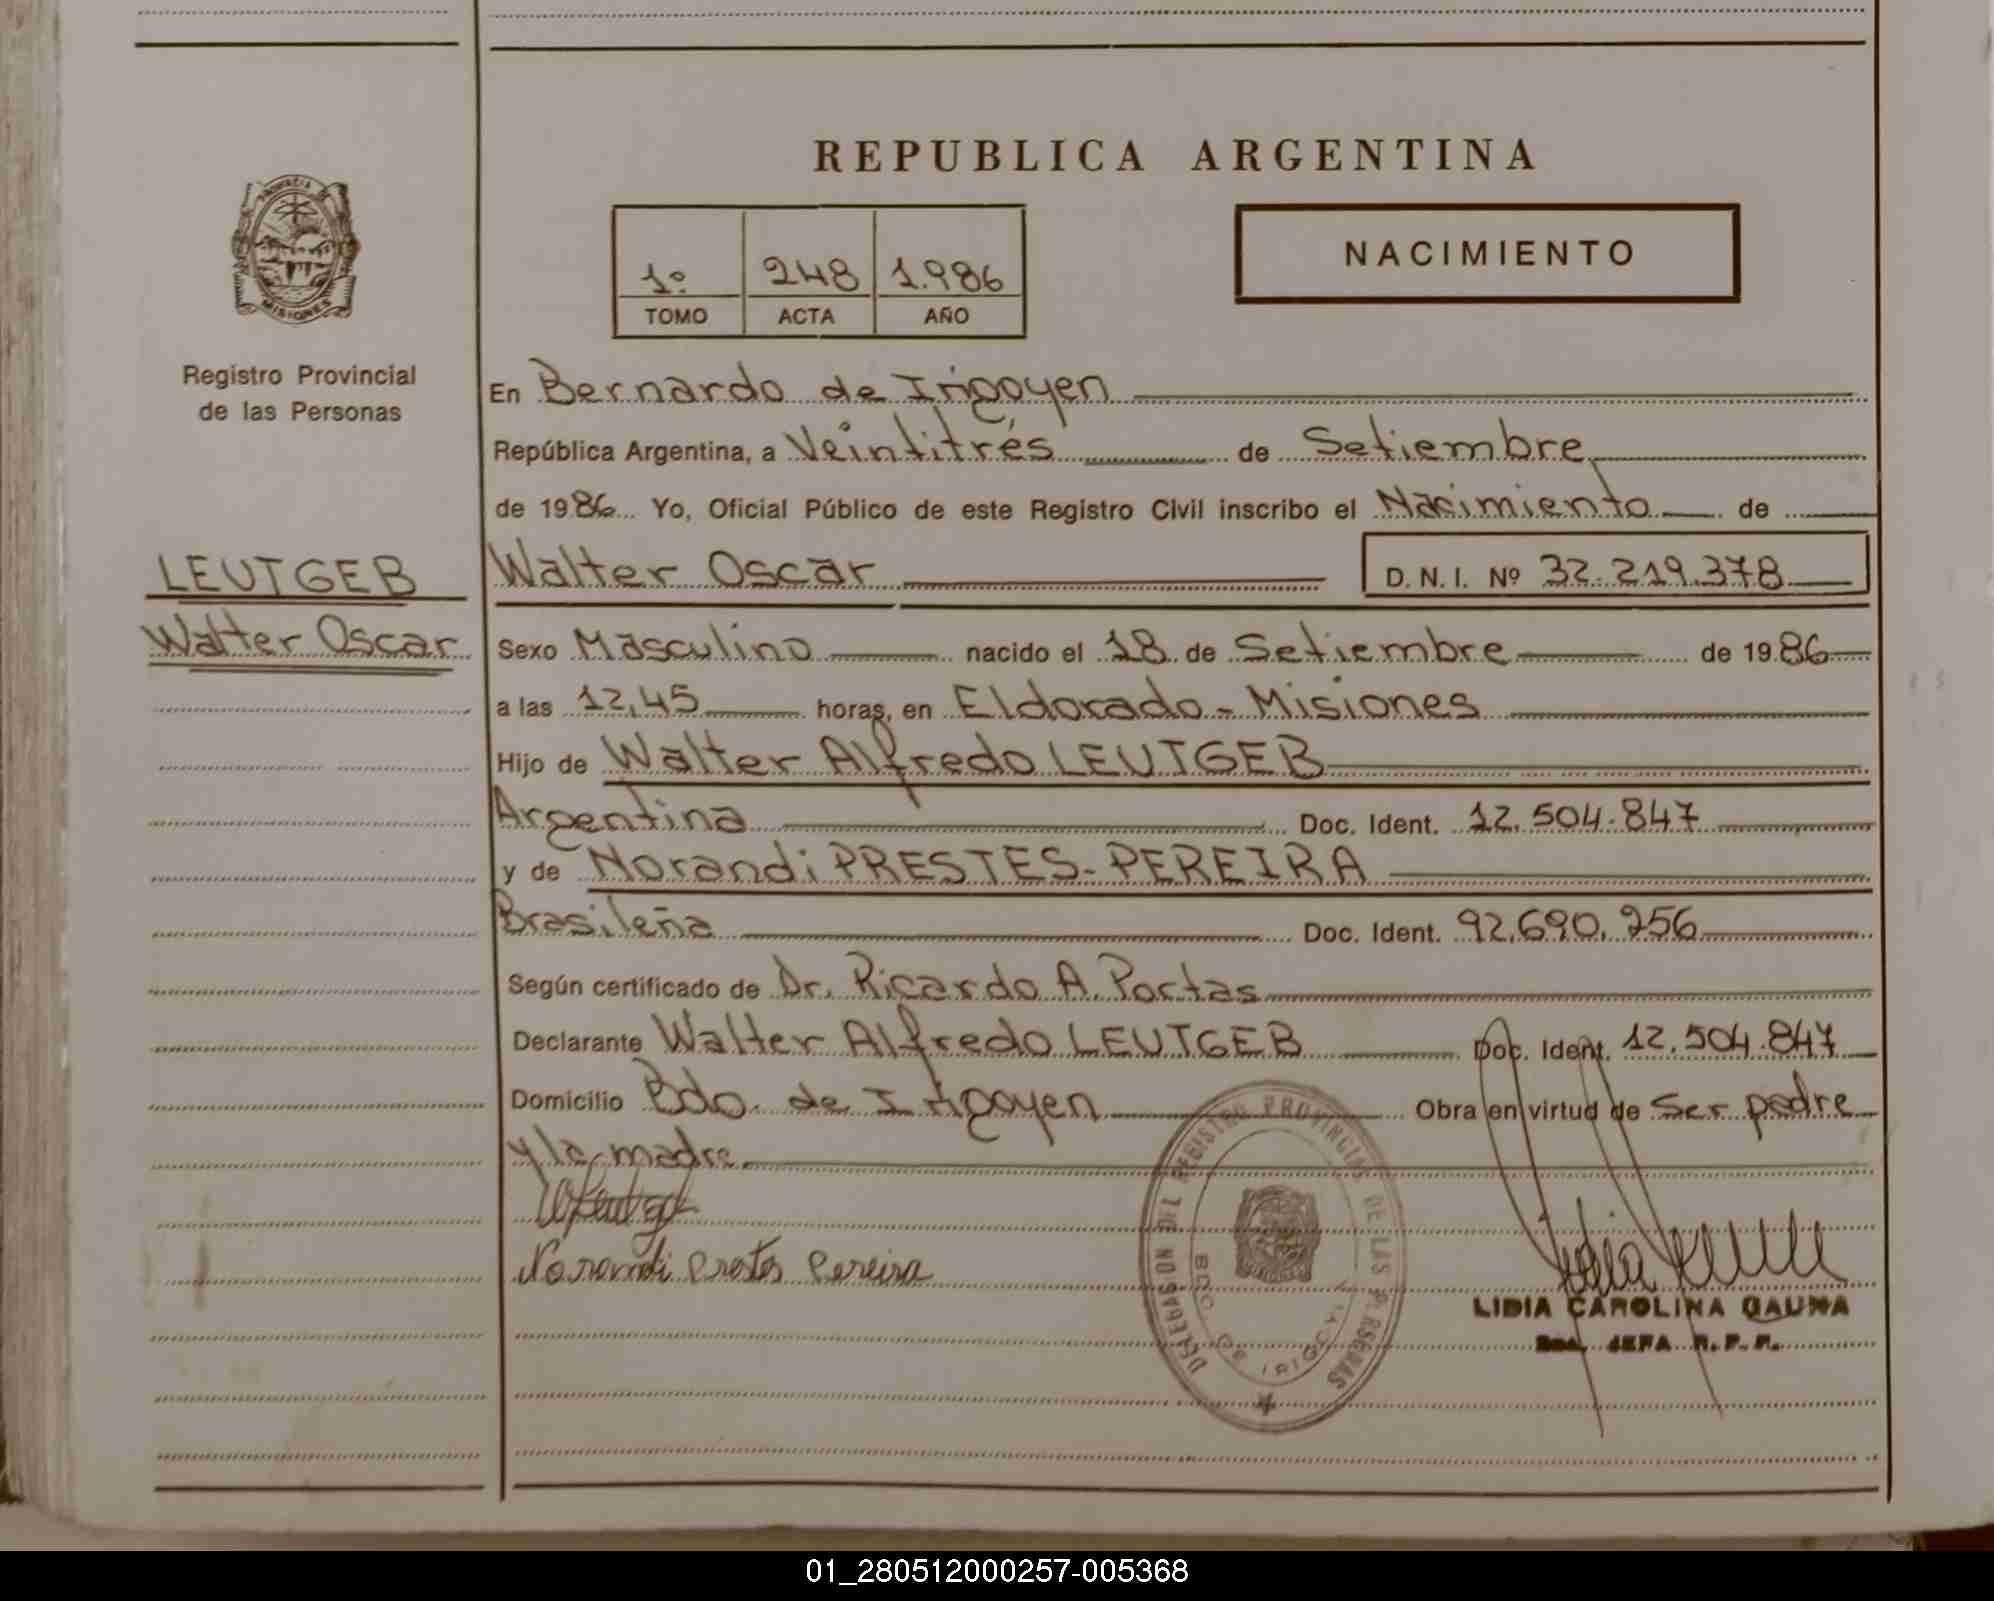 REPUBLICA ARGENTINA
PROVINCIA DE
MISIONES
1º 248 1.986
TOMO ACTA AÑO
NACIMIENTO
Registro Provincial
de las Personas
LEUTGEB
Walter Oscar
En Bernardo de Irigoyen
República Argentina, a Veintitrés de Setiembre
de 1986 Yo, Oficial Público de este Registro Civil inscribo el Nacimiento de
Walter Oscar D. N. I. Nº 32.219.378
Sexo Masculino nacido el 18 de Setiembre de 1986
a las 12,45 horas, en Eldorado - Misiones
Hijo de Walter Alfredo LEUTGEB
Argentina Doc. Ident. 12.504.847
y de Norandi PRESTES-PEREIRA
Brasileña Doc. Ident. 92.690.256
Según certificado de Dr. Ricardo A. Portas
Declarante Walter Alfredo LEUTGEB Doc. Ident. 12.504.847
Domicilio Bdo. de Irigoyen Obra en virtud de Ser padre
y la madre
Norandi Prestes Pereira
DELEGACION DEL REGISTRO PROVINCIAL DE LAS PERSONAS
BDO. DE IRIGOYEN
LIDIA CAROLINA GAUNA
JEFA R. P. P.
01_280512000257-005368